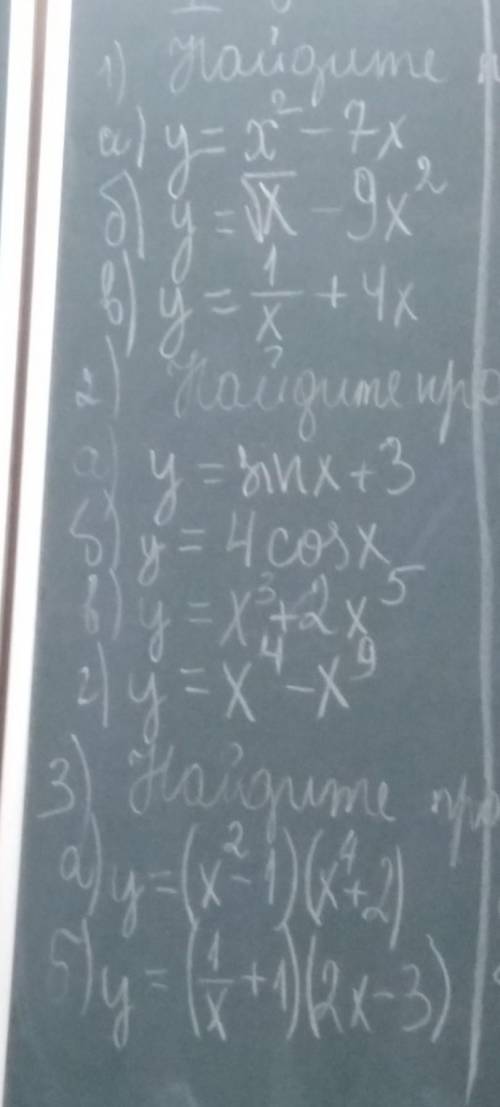 1) Найдите
а) y = x² - 7x
б) y = √x - 9x²
в) y = 1/x + 4x
2) Найдите про
а) y = sinx + 3
б) y = 4cosx
в) y = x³ + 2x⁵
г) y = x⁴ - x⁹
3) Найдите про
а) y = (x² - 1)(x⁴ + 2)
б) y = (1/x + 1)(2x - 3)